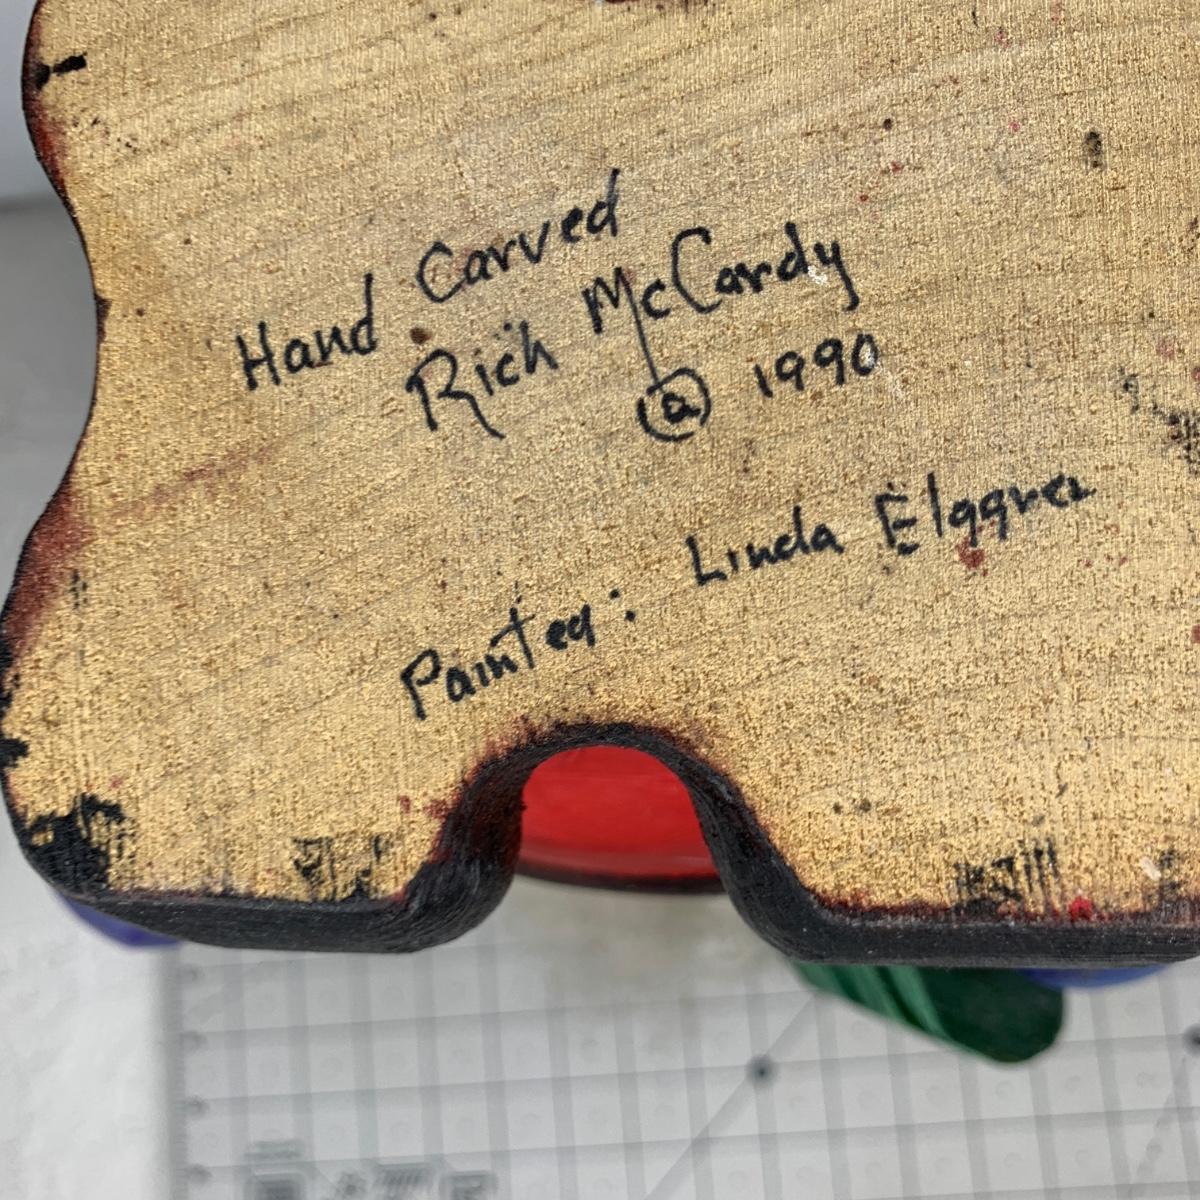 Hand Carved
Rich McCardy
@ 1990
Painted: Linda Elggren